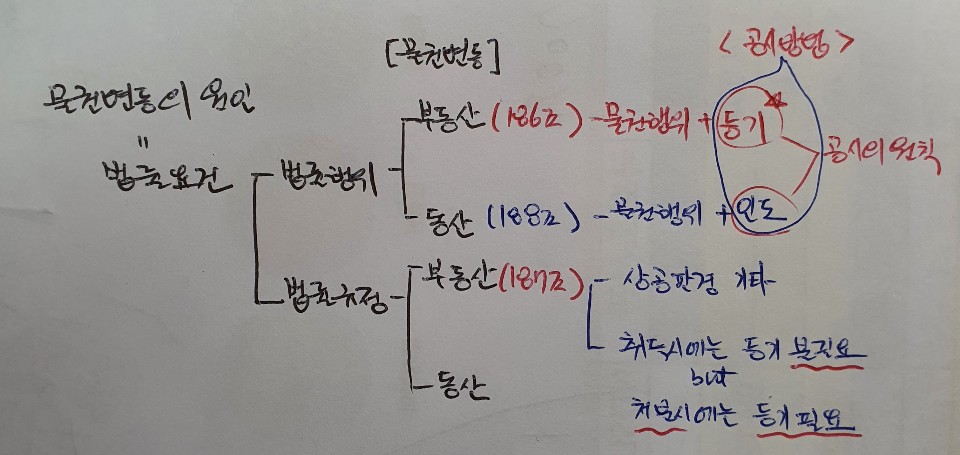 [물권변동]
<공시방법>
물권변동의 원인
"
법률요건
법률행위
부동산 (186조) - 물권행위 + 등기
공시의 원칙
동산 (188조) - 물권행위 + 인도
법률규정
부동산 (187조)
상공판경 기타
취득시에는 등기 불필요
but
처분시에는 등기 필요
동산